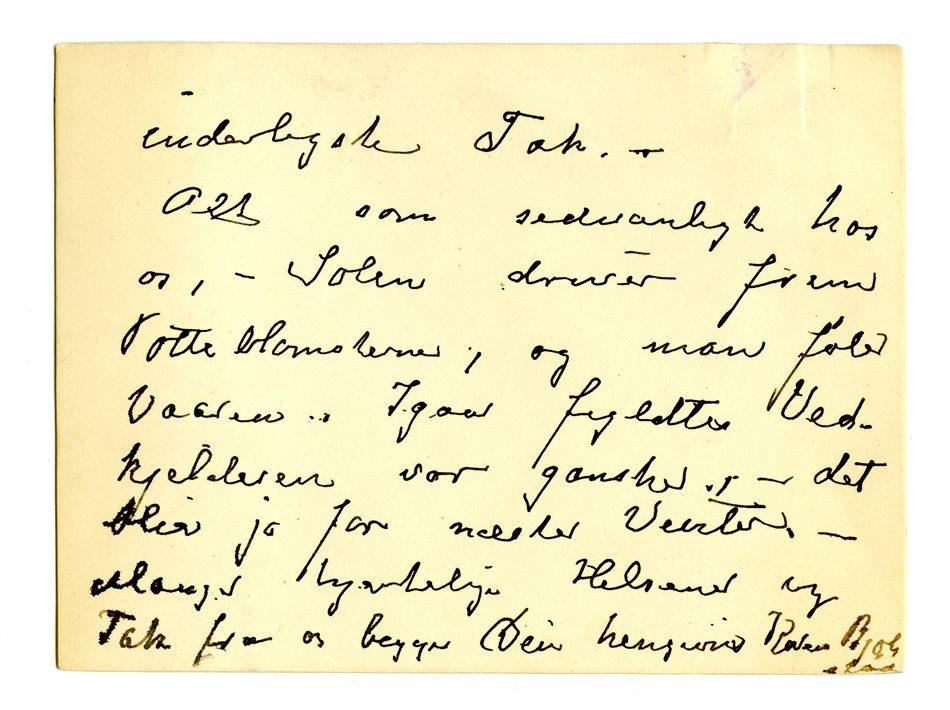 inderligste Tak. –
Alt som sedvanligt hos
os, – Solen driver frem
Potteblomsterne, og man føler
Vaaren. Igaar fyldtes Ved-
kjelderen vor ganske, – det
blir jo for næste Vinter. –
Mange hjertelige Hilsener og
Tak fra os begge Din hengivne